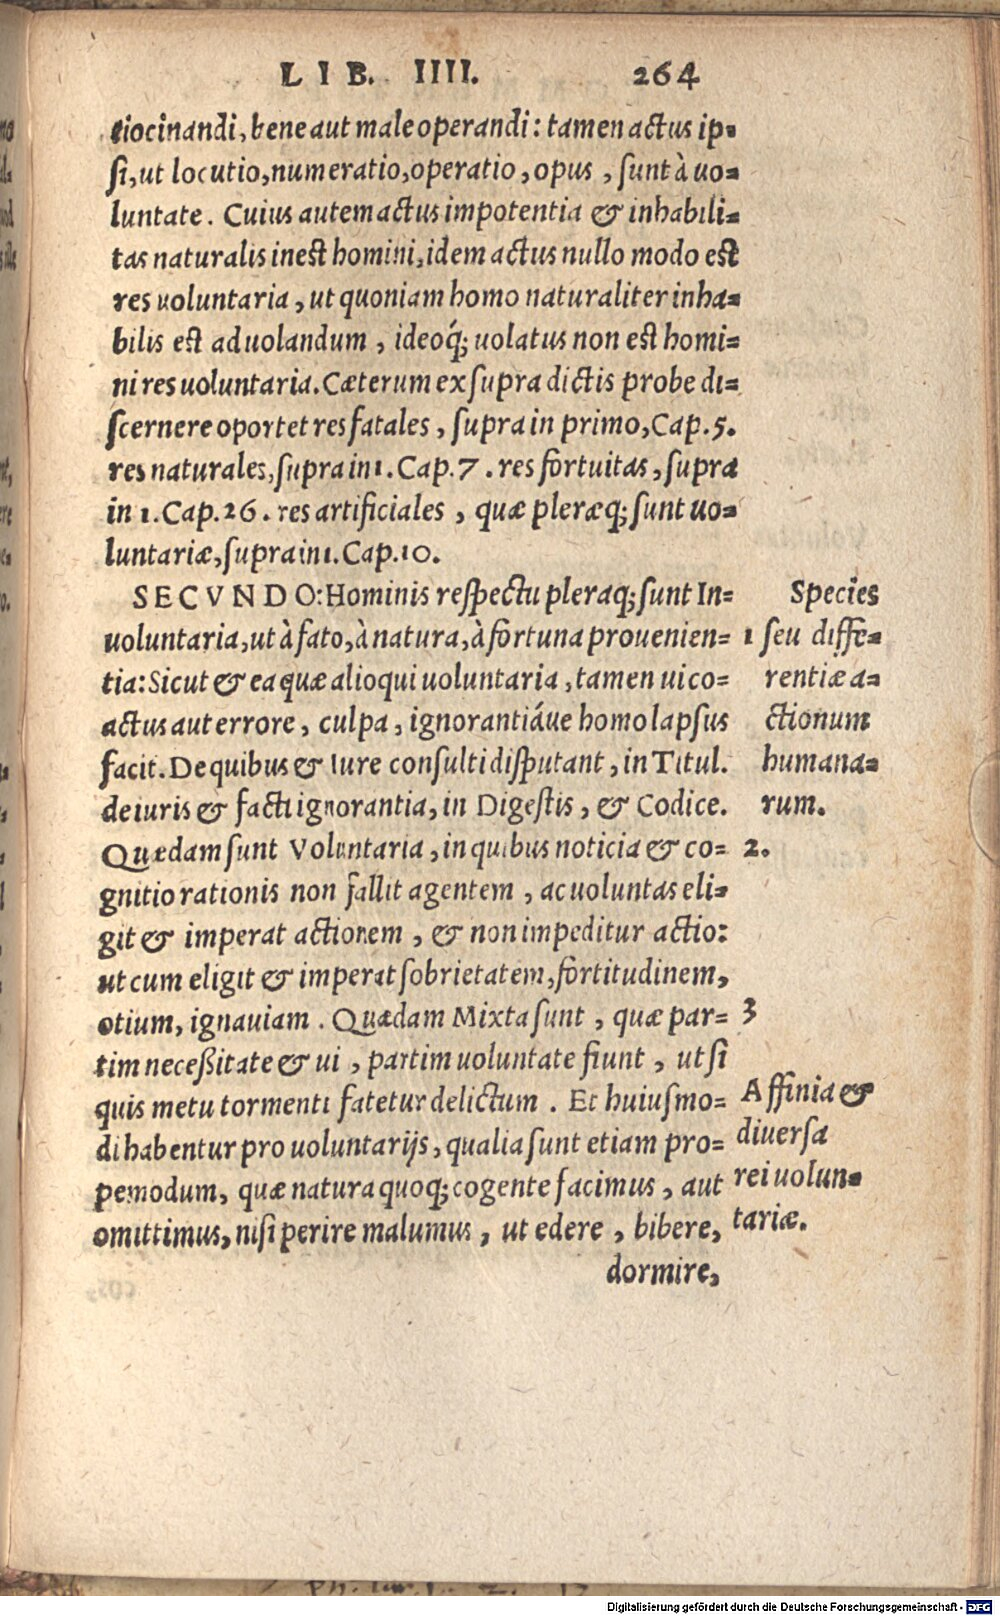 LIB. IIII. 264
tiocinandi, bene aut male operandi: tamen actus ip-
si, ut locutio, numeratio, operatio, opus, sunt à uo-
luntate. Cuius autem actus impotentia & inhabili-
tas naturalis inest homini, idem actus nullo modo est
res uoluntaria, ut quoniam homo naturaliter inha-
bilis est ad uolandum, ideoq́; uolatus non est homi-
ni res uoluntaria. Cæterum ex supra dictis probe di-
scernere oportet res fatales, supra in primo, Cap. 5.
res naturales, supra in 1. Cap. 7. res fortuitas, supra
in 1. Cap. 26. res artificiales, quæ pleræq; sunt uo-
luntariæ, supra in 1. Cap. 10.
SECVNDO: Hominis respectu pleraq; sunt In-
uoluntaria, ut à fato, à natura, à fortuna prouenien-
tia: Sicut & ea quæ alioqui uoluntaria, tamen ui co-
actus aut errore, culpa, ignorantiáue homo lapsus
facit. De quibus & Iure consulti disputant, in Titul.
de iuris & facti ignorantia, in Digestis, & Codice.
Quædam sunt Voluntaria, in quibus noticia & co-
gnitio rationis non fallit agentem, ac uoluntas eli-
git & imperat actionem, & non impeditur actio:
ut cum eligit & imperat sobrietatem, fortitudinem,
otium, ignauiam. Quædam Mixta sunt, quæ par-
tim necessitate & ui, partim uoluntate fiunt, ut si
quis metu tormenti fatetur delictum. Et huiusmo-
di habentur pro uoluntarijs, qualia sunt etiam pro-
pemodum, quæ natura quoq; cogente facimus, aut
omittimus, nisi perire malumus, ut edere, bibere,
dormire,
Species
1 seu diffe-
rentiæ a-
ctionum
humana-
rum.
2.
3
Affinia &
diuersa
rei uolun-
tariæ.
Digitalisierung gefördert durch die Deutsche Forschungsgemeinschaft - DFG